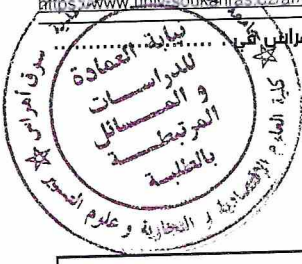 https://www.univ-soukahras.dz/ar
أهراس في
نيابة العمادة
للدراسات
و المسائل
المرتبطة
بالطلبة
سوق أهراس
كلية العلوم الاقتصادية و التجارية و علوم التسيير